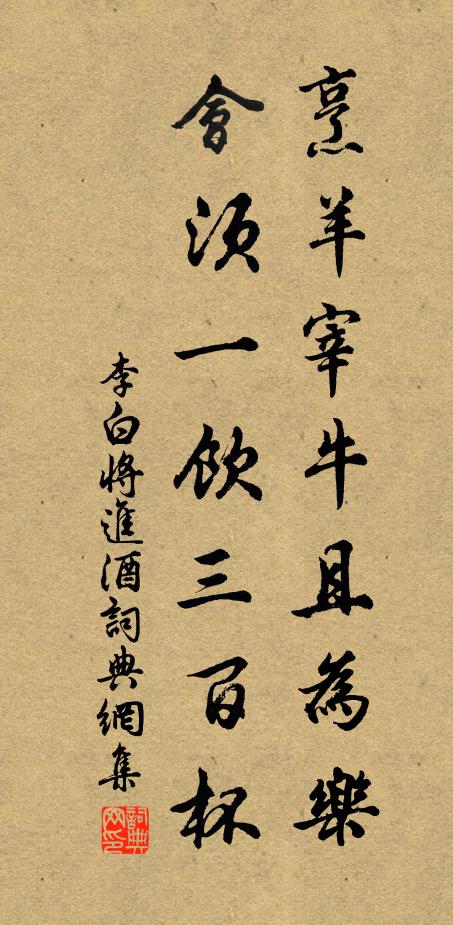 烹羊宰牛且為樂
會須一飲三百杯
李白將進酒詞典網集
詞典網印